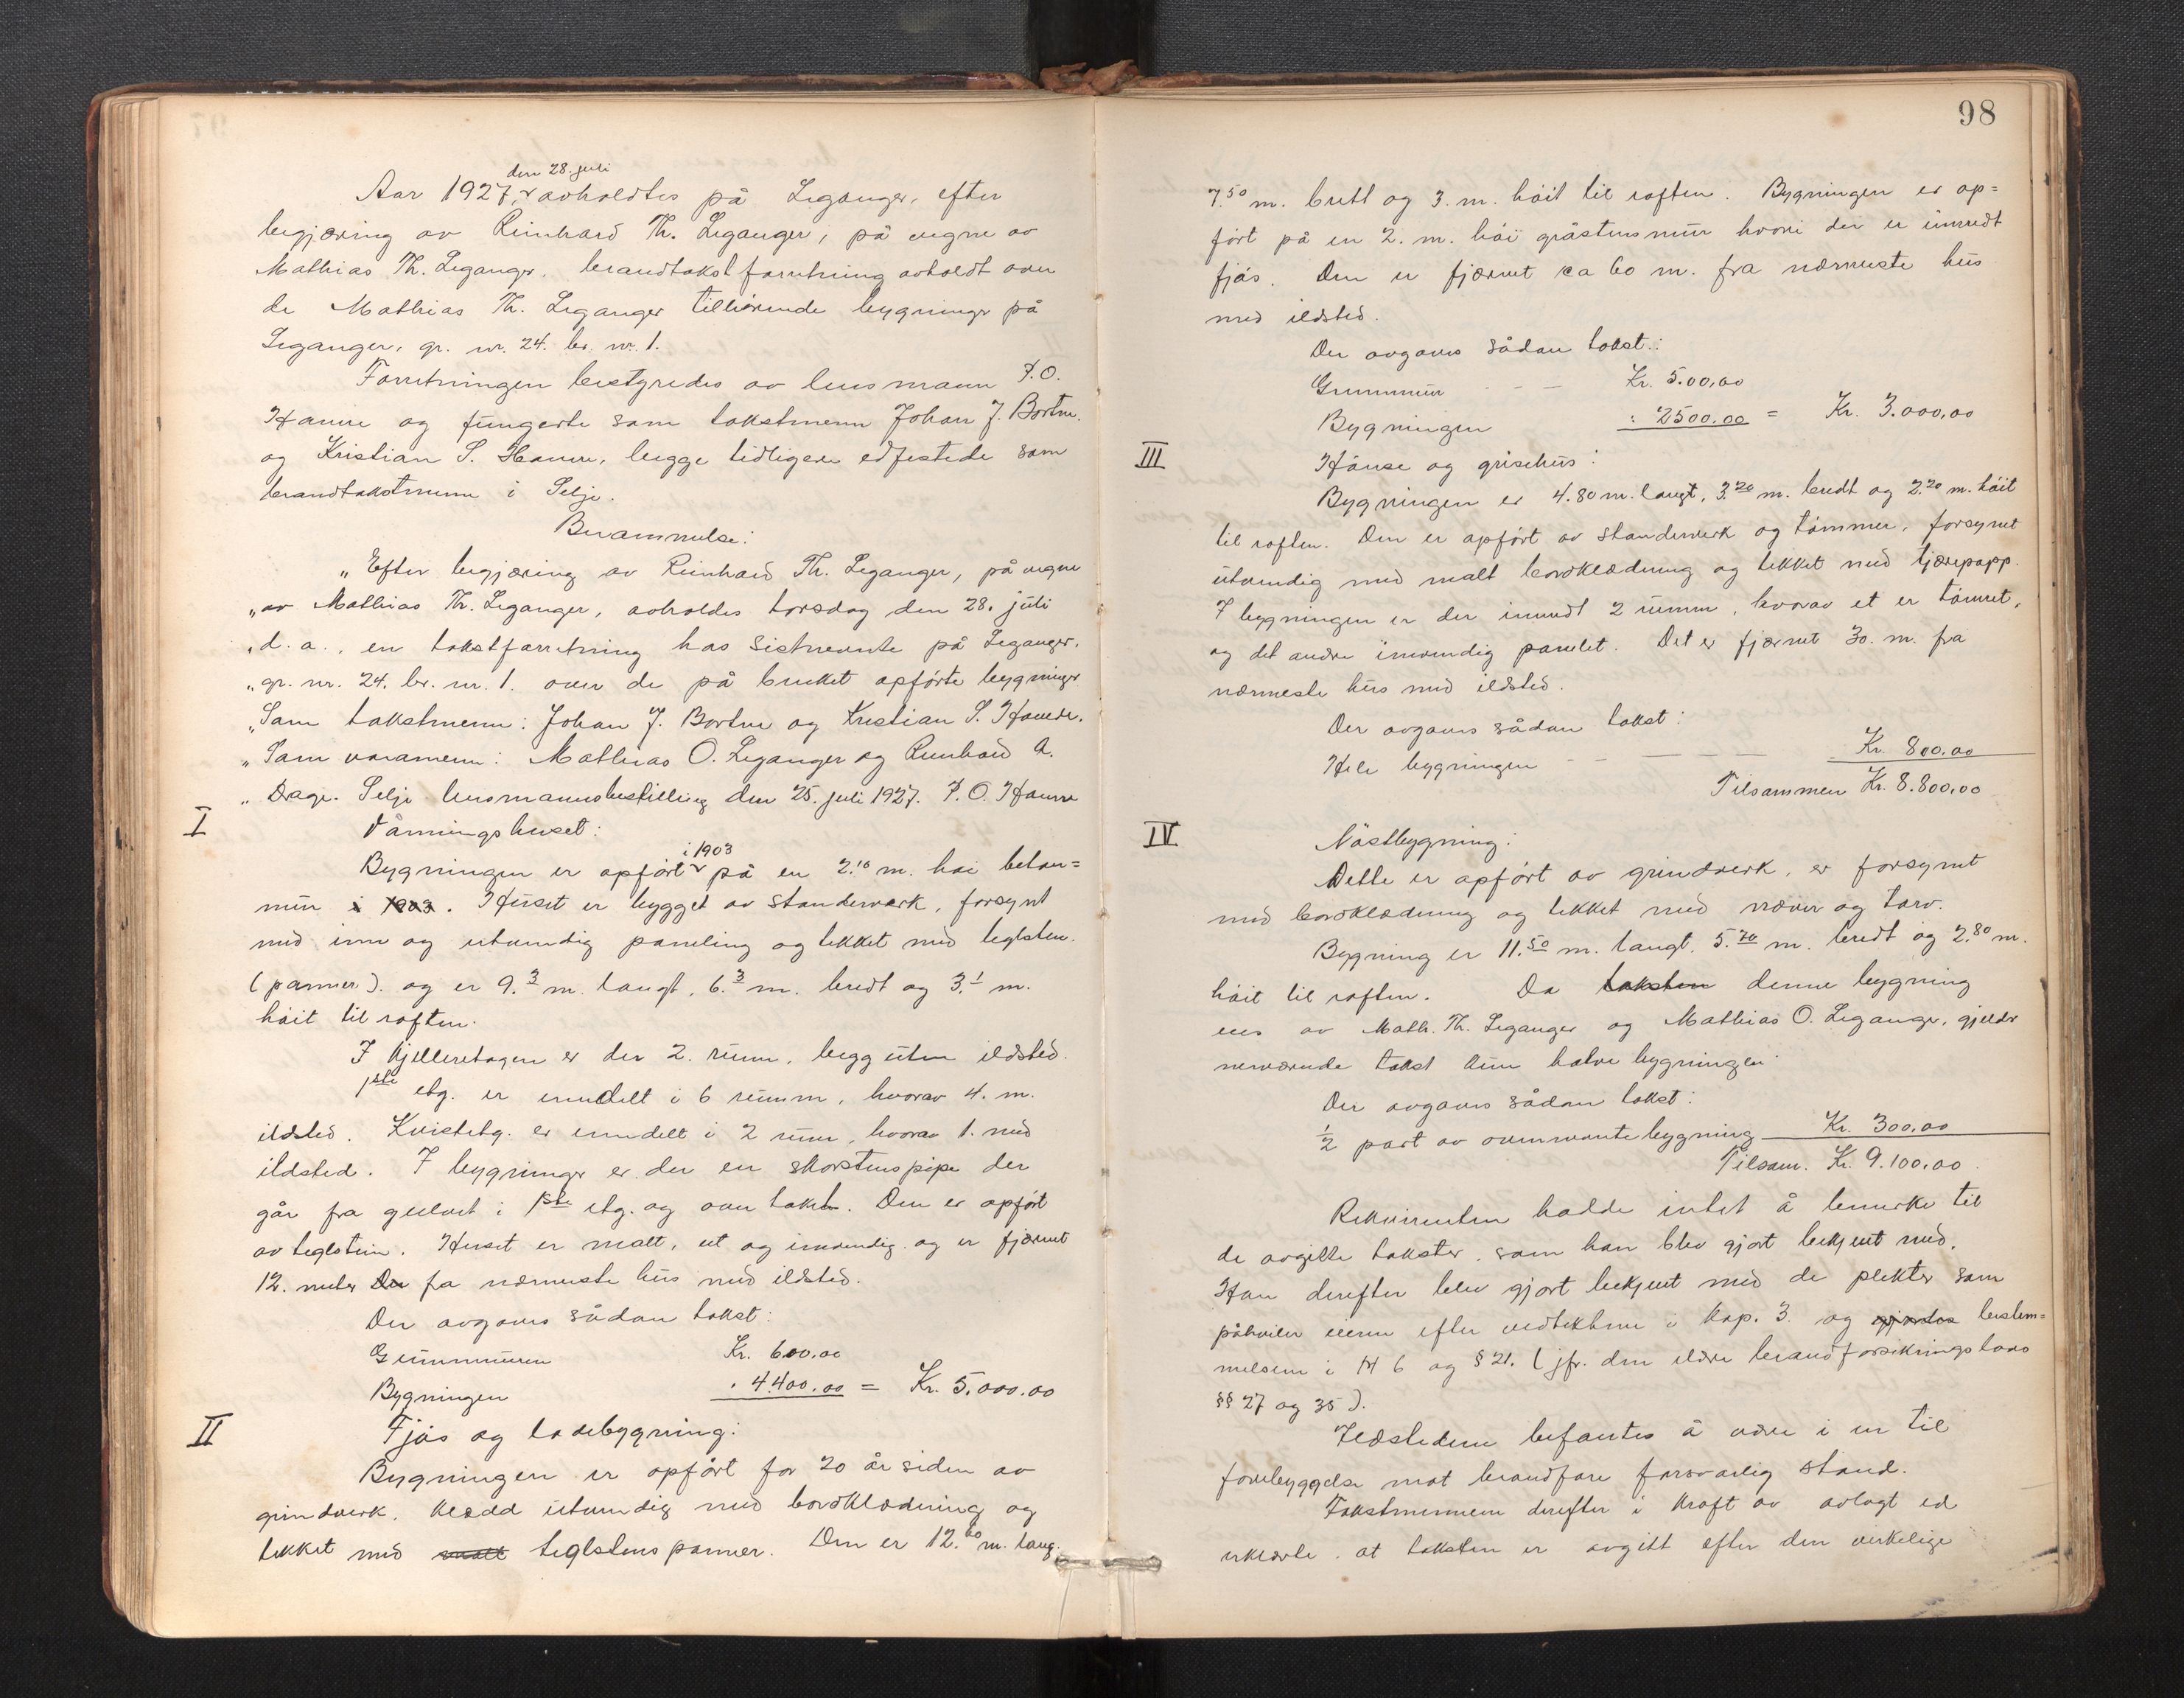 den 28. juli
Aar 1927, avholdtes på Leganger, efter
begjæring av Reinhard Th. Leganger, på vegne av
Mathias Th. Leganger, brandtakstforretning avholdt over
de Mathias Th. Leganger tilhörende bygninger på
Leganger, gr. nr. 24. br. nr. 1.
Forretningen bestyredes av lensmann P.O.
Hamre og fungerte som takstmenn Johan J. Bortne
og Kristian S. Hamre, begge tidligere edfestede som
brandtakstmenn i Selje.
Berammelse:
„Efter begjæring av Reinhard Th. Leganger, på vegne
„av Mathias Th. Leganger, avholdes torsdag den 28. juli
„d. a., en takstforretning hos sistnevnte på Leganger,
„gr. nr. 24. br. nr. 1. over de på bruket opförte bygninger
„Som takstmenn: Johan J. Bortne og Kristian S. Hamre.
„Som varamenn: Mathias O. Leganger og Reinhard A.
„Drage. Selje lensmannsbestilling den 25. juli 1927. P.O. Hamre
I Våningshuset:
i 1903
Bygningen er opfört på en 2.10 m. höi beton=
mur i 1903. Huset er bygget av standerverk, forsynt
med inn og utvendig paneling og tekket med teglsten.
(panner). og er 9.3 m. langt, 6.3 m. bredt og 3.1 m.
höit til raften.
I kjelleretagen er der 2. rum, begg uten ildsted.
1ste etg. er inndelt i 6 rumm, hvorav 4. m.
ildsted. Kvistetg. er inndelt i 2 rum, hvorav 1. med
ildsted. I bygninger er der en skorstenspipe der
går fra gulvet i 1ste etg. og over taket. Den er opfört
av teglstein. Huset er malt, ut og innvendig og er fjærnet
12. meter Den fa nærmeste hus med ildsted.
Der avgaves sådan takst:
Grunnmuren Kr. 600.00
Bygningen " 4.400.00 = Kr. 5.000.00
II Fjös og ladebygning:
Bygningen er opfört for 20 år siden av
grindverk, klædd utvendig med bordklædning og
tekket med malt teglstens panner. Den er 12.60 m. lang.
98
7.50 m. brett og 3. m. höit til raften. Bygningen er op=
fört på en 2. m. höi gråstensmur hvori der er innredt
fjös. Den er fjærnet ca 60 m. fra nærmeste hus
med ildsted.
Der avgaves sådan takst:
Grunnmur - - Kr. 5.00,00
Bygningen " 2500.00 = Kr. 3.000,00
III Hönse og grisehus:
Bygningen er 4.80 m. langt, 3.20 m. bredt og 2.20 m. höit
til raften. Den er opfört av standerverk og tömmer, forsynet
utvendig med malt bordklædning og tekket med tjærepapp.
I bygningen er der innredt 2 rumm, hvorav et er tömret,
og det andre innvendig panelet. Det er fjærnet 30. m. fra
nærmeste hus med ildsted.
Der avgaves sådan takst:
Hele bygningen - - Kr. 800.00
Tilsammen Kr. 8.800,00
IV Nöstbygning:
Dette er opfört av grindverk, er forsynt
med bordklædning og tekket med næver og torv.
Bygning er 11.50 m. langt. 5.70 m. bredt og 2.80 m.
höit til raften. Da taksten denne bygning
eies av Math. Th. Leganger og Mathias O. Leganger, gjelder
nerværende takst kun halve bygningen
Der avgaves sådan takst:
1/2 part av ovennevnte bygning Kr. 300.00
Tilsam. Kr. 9.100.00
Rekvirenten hadde intet å bemerke til
de avgitte takster, som han blev gjort bekjent med.
Han derefter blev gjort bekjent med de plekter som
påhviler eieren efter vedtektene i kap. 3. og bestem=
melsene i § 6 og § 21. (jfr. den eldre brandforsikringslovs
§§ 27 og 35).
Ildstedene befantes å være i en til
forebyggelse mot brandfare forsvarlig stand.
Takstmennene derefter i kraft av avlagt ed
erklærte, at taksten er avgitt efter den virkelige